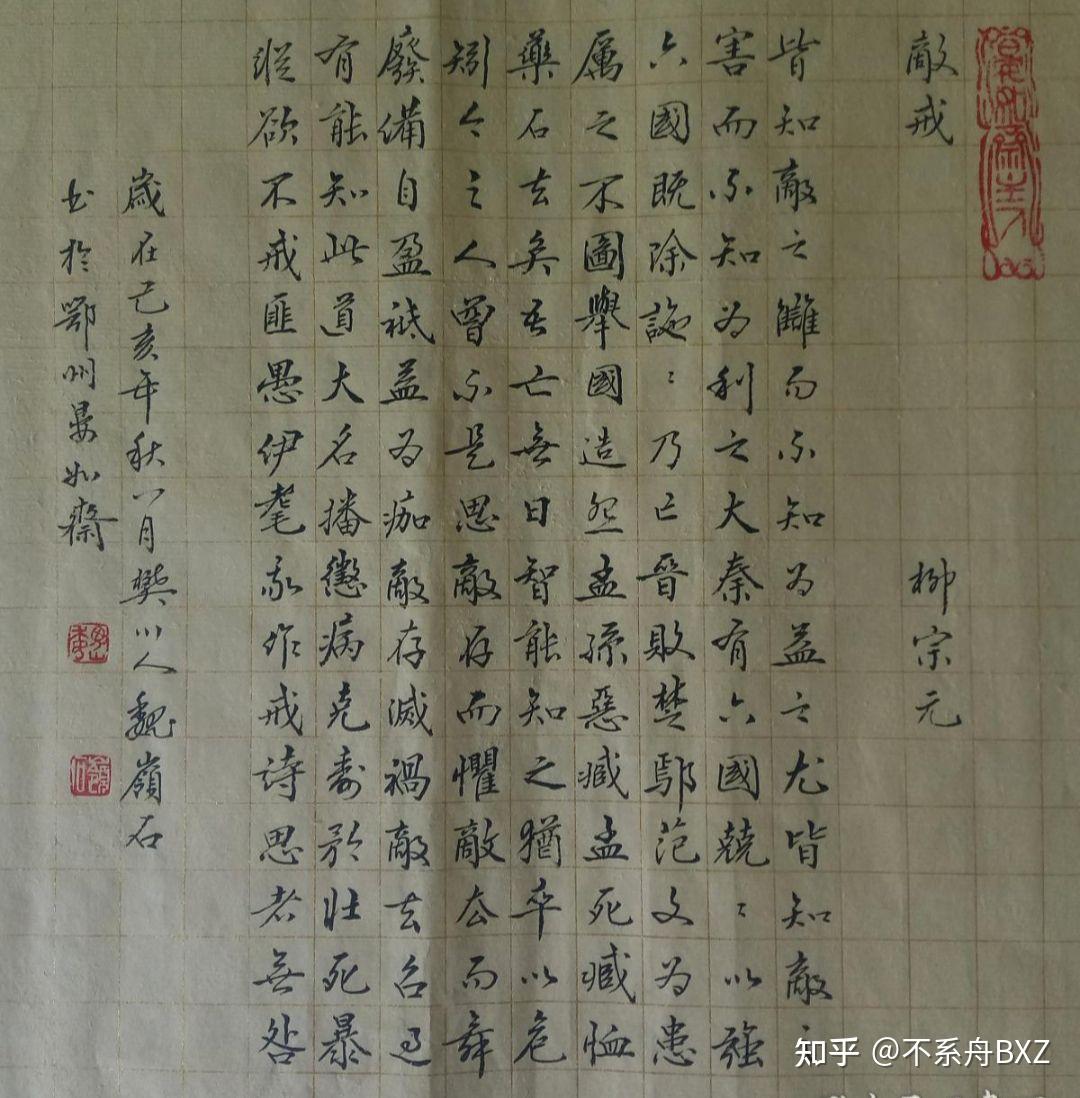 敵戒 柳宗元
皆知敵之讎而不知為益之尤皆知敵之
害而不知為利之大秦有六國兢〻以強
六國既除訑〻乃亡晉敗楚鄢范文為患
厲之不圖舉國造怨孟孫惡臧孟死臧恤
藥石去矣吾亡無日智能知之猶卒以危
矧今之人曾不是思敵存而懼敵去而舞
廢備自盈祗益為痂敵存滅禍敵去召過
有能知此道大名播懲病克壽矜壯死暴
縱欲不戒匪愚伊耄我作戒詩思者無咎
歲在己亥年秋八月樊川人魏嶺石
书於鄂州晏如齋
知乎 @不系舟BXZ